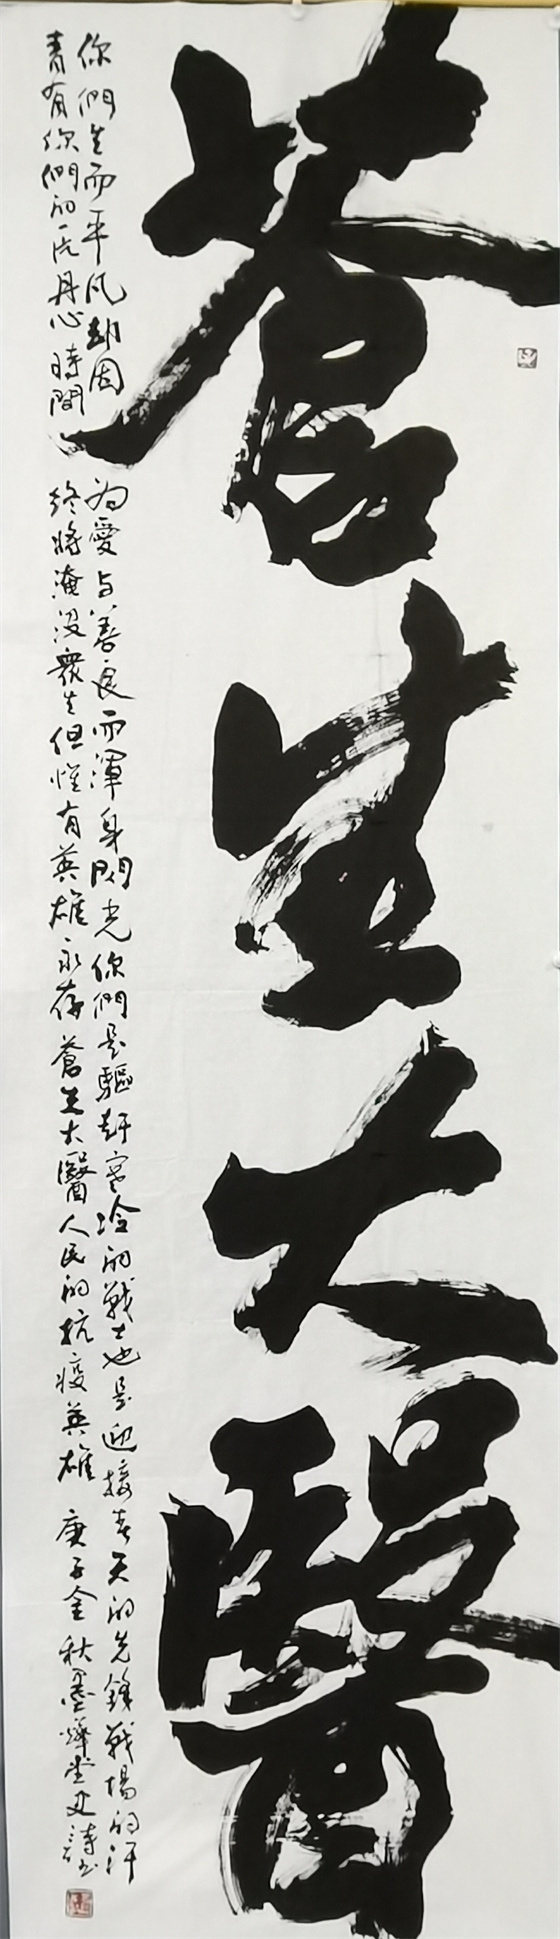 蒼生大醫
你們生而平凡却因為愛与善良而渾身閃光你們是驅赶寒冷的戰士也是迎接春天的先鋒戰場的汗
青有你們的一片丹心時間終將淹没衆生但惟有英雄永存蒼生大醫人民的抗疫英雄庚子金秋墨